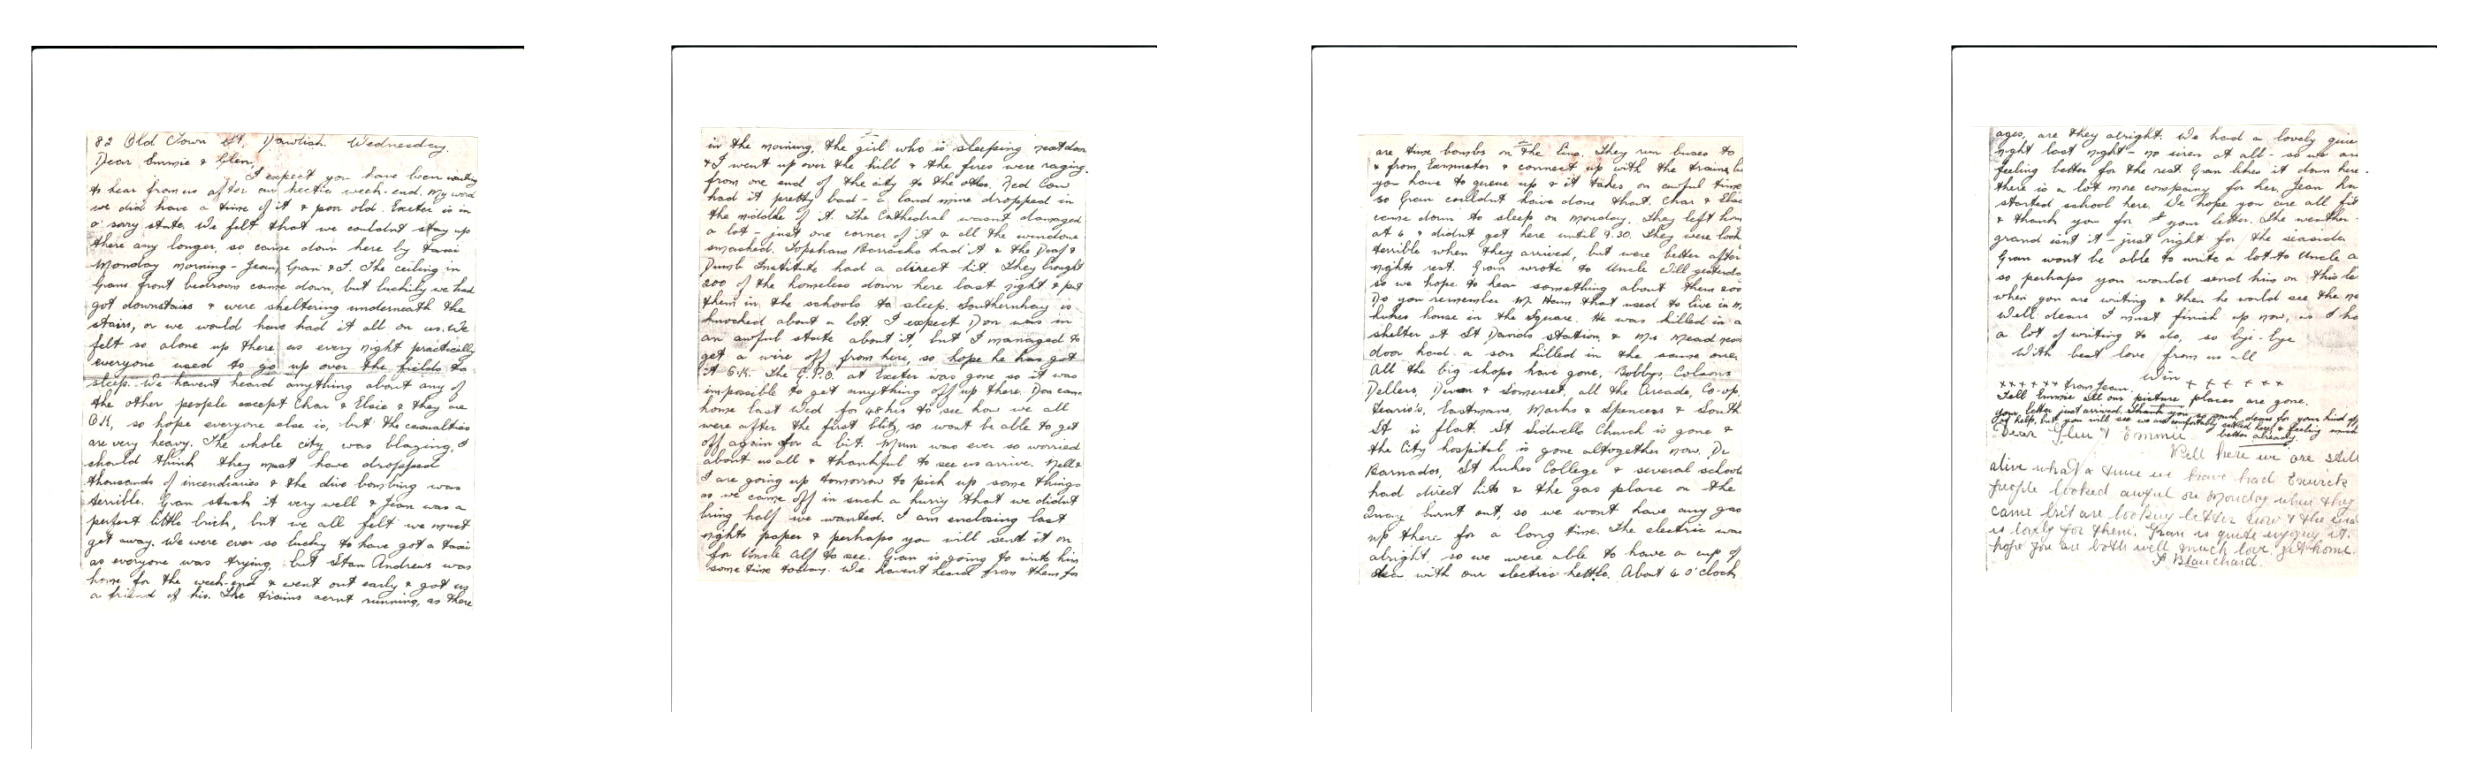 82 Old Town St, Dawlish. Wednesday.
Dear Emmie & Glen,
I expect you have been waiting
to hear from us after our hectic week-end. My word
we did have a time of it & poor old Exeter is in
a sorry state. We felt that we couldnt stay up
there any longer, so came down here by taxi
Monday morning - Jean, Gran & I. The ceiling in
Grans front bedroom came down, but luckily we had
got downstairs & were sheltering underneath the
stairs, or we would have had it all on us. We
felt so alone up there as every night practically
everyone used to go up over the fields to
sleep. We havent heard anything about any of
the other people except Char & Elsie & they are
O.K, so hope everyone else is, but the casualties
are very heavy. The whole city was blazing, I
should think they must have dropped
thousands of incendiaries & the dive bombing was
terrible. Gran stuck it very well & Jean was a
perfect little brick, but we all felt we must
get away. We were ever so lucky to have got a taxi
as everyone was trying, but Stan Andrews was
home for the week-end & went out early & got us
a friend of his. The trains aernt running, as there
in the morning, the girl who is sleeping nextdoor
& I went up over the hill & the fires were raging.
from one end of the city to the other. Red Cow
had it pretty bad - a land mine dropped in
the middle of it. The Cathedral wasnt damaged
a lot - just one corner of it & all the windows
smashed. Topsham Barracks had it & the Deaf &
Dumb Institute had a direct hit. They brought
200 of the homeless down here last night & put
them in the schools to sleep. Southernhay is
knocked about a lot. I expect Don was in
an awful state about it, but I managed to
get a wire off from here, so hope he has got
it O.K. The G.P.O. at Exeter was gone so it was
impossible to get anything off up there. Don came
home last Wed for 48 hrs to see how we all
were after the first blitz, so wont be able to get
off again for a bit. Mum was ever so worried
about us all & thankful to see us arrive. Nell &
I are going up tomorrow to pick up some things
as we came off in such a hurry that we didnt
bring half we wanted. I am enclosing last
nights paper & perhaps you will send it on
for Uncle Alf to see. Gran is going to write him
some time today. We havent heard from them for
are time bombs on the line. They run buses to
& from Exminster & connect up with the trains, b
you have to queue up & it takes an awful time
so Gran couldnt have done that. Char & Elsie
came down to sleep on Monday. They left hom
at 6 & didnt get here until 9.30. They were look
terrible when they arrived, but were better after
nights rest. Gran wrote to Uncle Will yesterda
so we hope to hear something about them soo
Do you remember Mr Ham that used to live in M.
Lukes house in the Square. He was killed in a
shelter at St Davids station & Mrs Mead next
door had a son killed in the same one.
All the big shops have gone, Bobbys, Colsons
Dellers, Dixon & Somerset, all the Arcade, Co-op,
Fearis's, Eastmans, Marks & Spencers & South
St is flat. St Sidwells Church is gone &
the City hospital is gone altogether now. Dr
Barnados, St Lukes College & several school
had direct hits & the gas place on the
Quay burnt out, so we wont have any gas
up there for a long time. The electric was
alright, so we were able to have a cup of
tea with our electric kettle. About 4 o'clock
ages, are they alright. We had a lovely quie
night last night - no siren at all - so we are
feeling better for the rest. Gran likes it down here.
there is a lot more company for her. Jean ha
started school here. We hope you are all fit
& thank you for your letter. The weather
grand isnt it - just right for the seaside.
Gran wont be able to write a lot to Uncle A
so perhaps you would send him on this le
when you are writing & then he would see the ne
Well dears I must finish up now, as I ha
a lot of writing to do, so bye-bye
With best love from us all
Win + + + + + +
x x x x x x from Jean.
Tell Emmie all our picture places are gone.
Your letter just arrived. Thank you so much, dears for your kind of
of help, but you will see we are comfortably settled here, & feeling much
better already.
Dear Glen & Emmie
Well here we are still
alive what a time we have had Exwick
people looked awful on Monday when they
came but are looking better now & the
is lovely for them. Gran is quite enjoying it.
hope you are both well much love
J Blanchard.